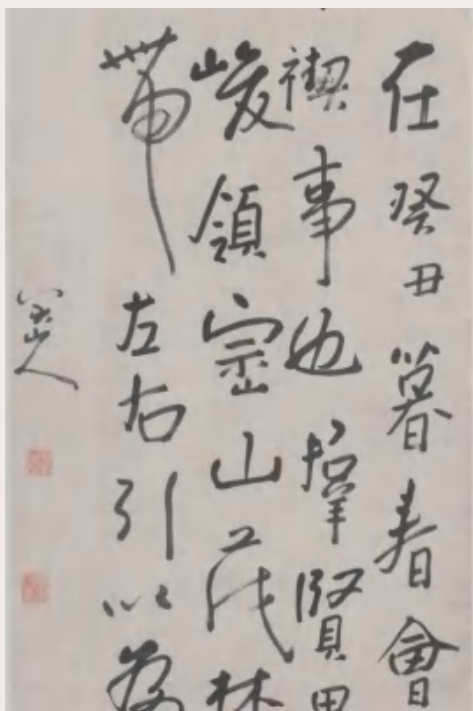 在癸丑暮春會
禊事也羣賢
峻領崇山茂林
帶左右引以為
八大山人